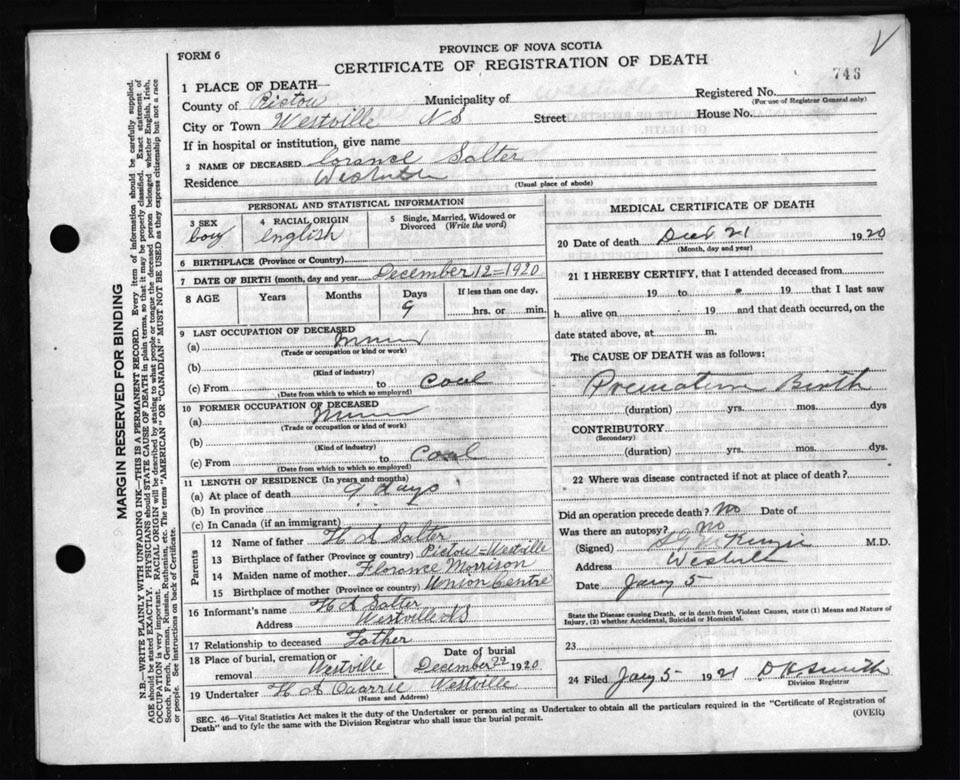 PROVINCE OF NOVA SCOTIA
FORM 6
CERTIFICATE OF REGISTRATION OF DEATH
V
746
1 PLACE OF DEATH—
Registered No.
(For use of Registrar General only)
County of Pictou Municipality of
City or Town Westville NS Street House No.
If in hospital or institution, give name
2 NAME OF DECEASED Salter
Residence Westville
(Usual place of abode)
PERSONAL AND STATISTICAL INFORMATION
3 SEX boy
4 RACIAL ORIGIN english
5 Single, Married, Widowed or Divorced (Write the word)
6 BIRTHPLACE (Province or County)
7 DATE OF BIRTH (month, day and year) December 12=1920
8 AGE Years Months Days If less than one day,
9 hrs. or min.
9 LAST OCCUPATION OF DECEASED
(a) Miner
(Trade or occupation or kind or work)
(b)
(Kind of industry)
(c) From to Coal
(Date from which to which so employed)
10 FORMER OCCUPATION OF DECEASED
(a) Miner
(Trade or occupation or kind of work)
(b)
(Kind of industry)
(c) From to Coal
(Date from which to which so employed)
11 LENGTH OF RESIDENCE (In years and months)
(a) At place of death 9 days
(b) In province
(c) In Canada (if an immigrant)
Parents
12 Name of father H A Salter
13 Birthplace of father (Province or country) Pictou=Westville
14 Maiden name of mother Florance Morrison
15 Birthplace of mother (Province or country) Union Centre
16 Informant's name H A Salter
Address Westville NS
17 Relationship to deceased Father
18 Place of burial, cremation or removal Westville Date of burial December 22 1920
19 Undertaker H A Quarrie Westville
(Name and Address)
MEDICAL CERTIFICATE OF DEATH
20 Date of death Dec 21 1920
(Month, day and year)
21 I HEREBY CERTIFY, that I attended deceased from
19 to 19 that I last saw
h alive on 19 and that death occurred, on the
date stated above, at m.
The CAUSE OF DEATH was as follows:
Premature Birth
(duration) yrs. mos. dys
CONTRIBUTORY
(Secondary)
(duration) yrs. mos. dys.
22 Where was disease contracted if not at place of death?
Did an operation precede death? No Date of
Was there an autopsy? no
(Signed) McKenzie M.D.
Address Westville
Date Jany 5
State the Disease causing Death, or in death from Violent Causes, state (1) Means and Nature of
Injury, (2) whether Accidental, Suicidal or Homicidal.
23
24 Filed Jany 5 1921 D K Smith
Division Registrar
SEC. 46—Vital Statistics Act makes it the duty of the Undertaker or person acting as Undertaker to obtain all the particulars required in the "Certificate of Registration of
Death" and to fyle the same with the Division Registrar who shall issue the burial permit.
(OVER)
MARGIN RESERVED FOR BINDING
N.B.—WRITE PLAINLY WITH UNFADING INK—THIS IS A PERMANENT RECORD. Every item of information should be carefully supplied.
AGE should be stated EXACTLY. PHYSICIANS should STATE CAUSE OF DEATH in plain terms, so that it may be properly classified. Exact statement of
OCCUPATION is very important. RACIAL ORIGIN will be described by stating to what people or tongue the deceased person belonged whether English, Irish,
Scotch, French, German, Russian, Ruthenian, etc. The terms "AMERICAN" OR "CANADIAN" MUST NOT BE USED as they express citizenship but not a race
or people. See instructions on back of Certificate.